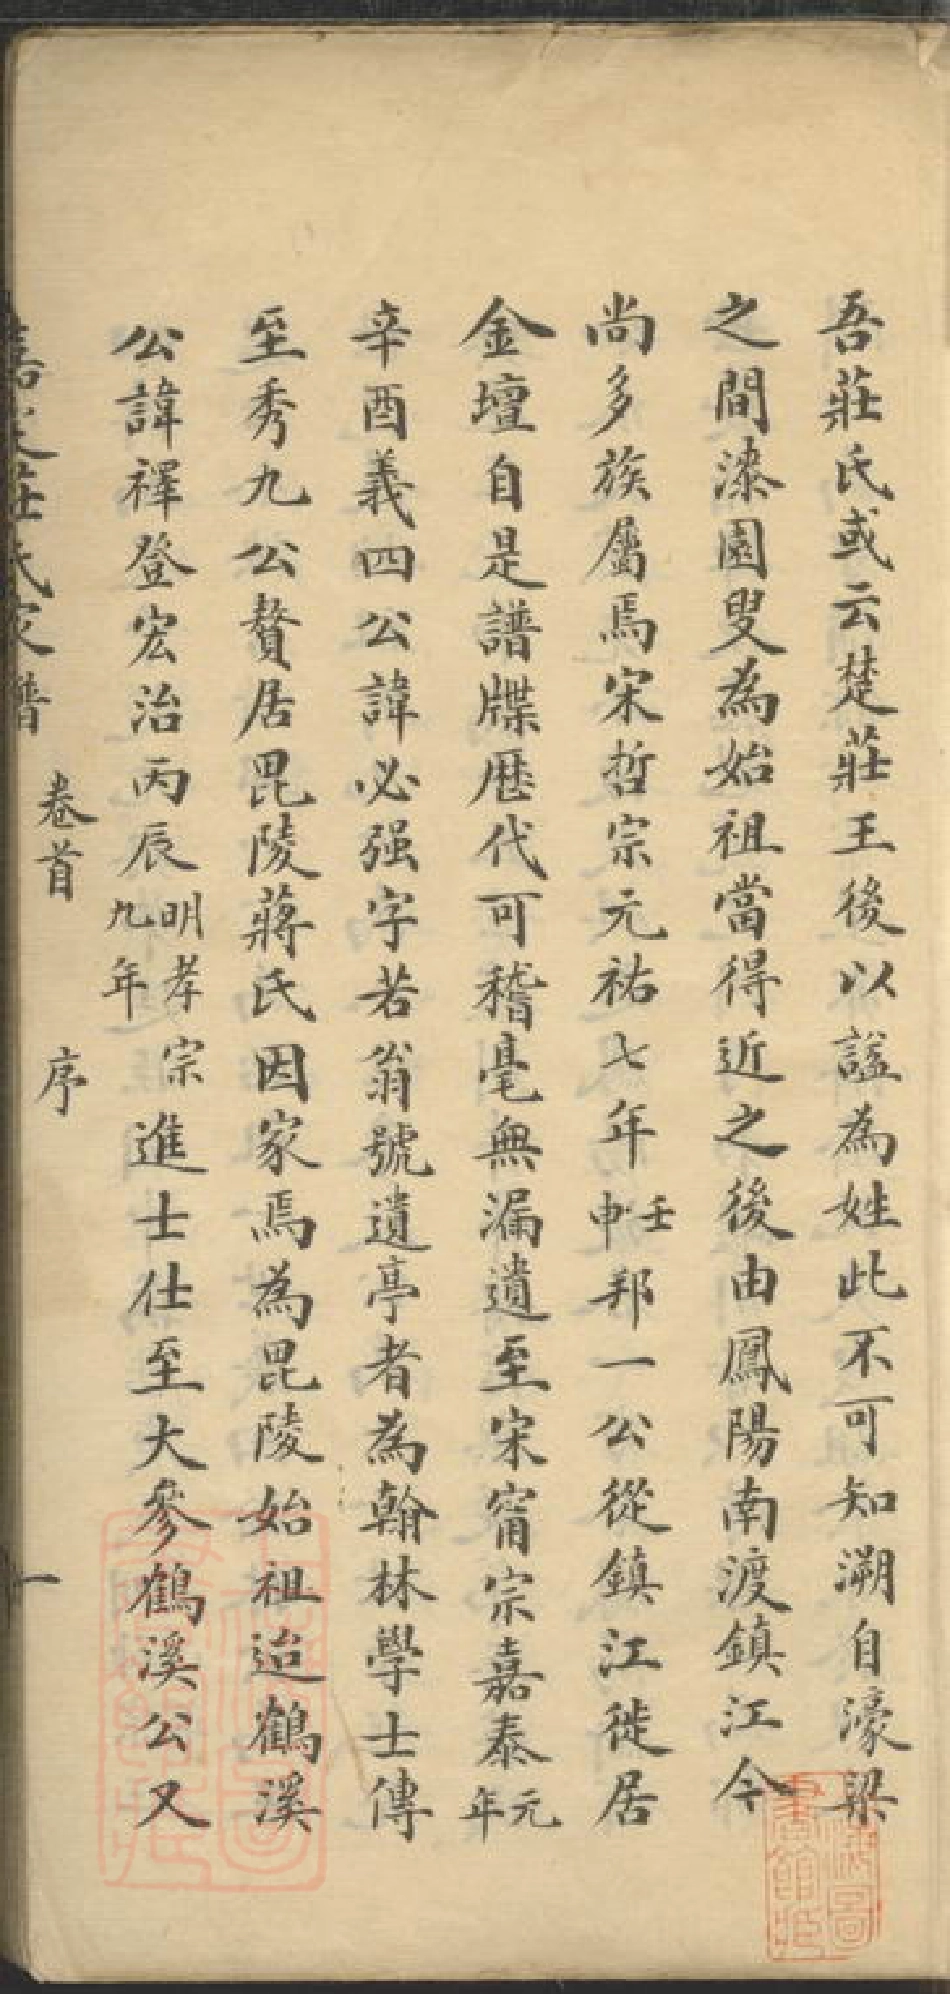 吾莊氏或云楚莊王後以謚為姓此不可知溯自濠梁
之間漆園叟為始祖當得近之後由鳳陽南渡鎮江今
尚多族屬焉宋哲宗元祐七年壬申邦一公從鎮江徙居
金壇自是譜牒歷代可稽毫無漏遺至宋甯宗嘉泰元年
辛酉義四公諱必强字若翁號遺亭者為翰林學士傳
至秀九公贅居毘陵蔣氏因家焉為毘陵始祖迨鶴溪
公諱襗登宏治丙辰明孝宗九年進士仕至大參鶴溪公又
莊氏家譜 卷首 序 一